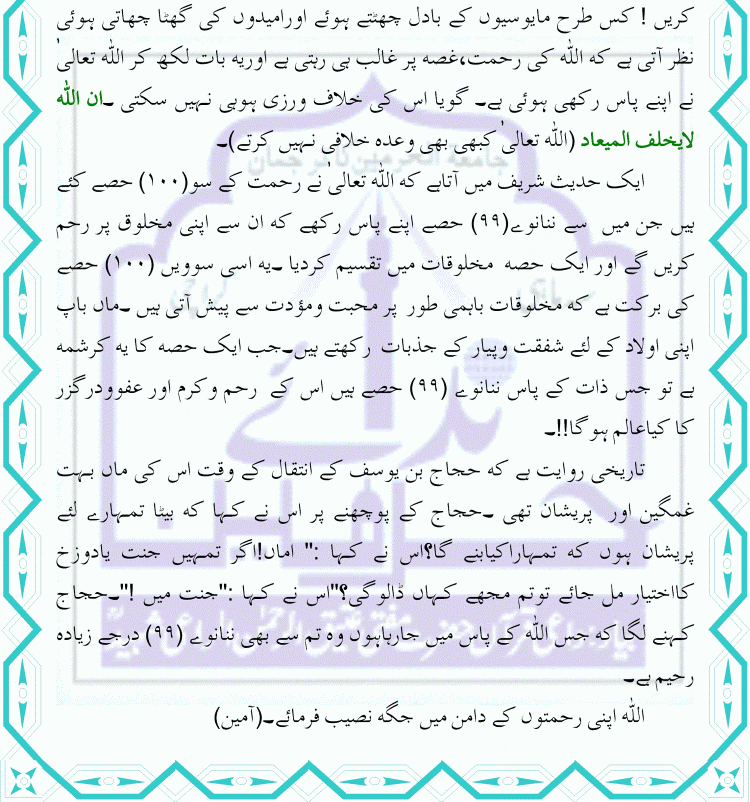 کریں ! کس طرح مایوسیوں کے بادل چھٹتے ہوئے اورامیدوں کی گھٹا چھاتی ہوئی
نظر آتی ہے کہ اللہ کی رحمت،غصہ پر غالب ہی رہتی ہے اوریہ بات لکھ کر اللہ تعالیٰ
نے اپنے پاس رکھی ہوئی ہے۔ گویا اس کی خلاف ورزی ہوہی نہیں سکتی ۔ان اللہ
لایخلف المیعاد (اللہ تعالیٰ کبھی بھی وعدہ خلافی نہیں کرتے)۔
ایک حدیث شریف میں آتاہے کہ اللہ تعالیٰ نے رحمت کے سو(۱۰۰) حصے کئے
ہیں جن میں سے ننانوے(۹۹) حصے اپنے پاس رکھے کہ ان سے اپنی مخلوق پر رحم
کریں گے اور ایک حصہ مخلوقات میں تقسیم کردیا ۔یہ اسی سوویں (۱۰۰) حصے
کی برکت ہے کہ مخلوقات باہمی طور پر محبت ومؤدت سے پیش آتی ہیں ۔ماں باپ
اپنی اولاد کے لئے شفقت وپیار کے جذبات رکھتے ہیں۔جب ایک حصہ کا یہ کرشمہ
ہے تو جس ذات کے پاس ننانوے (۹۹) حصے ہیں اس کے رحم وکرم اور عفوودرگزر
کا کیاعالم ہوگا!!!۔
تاریخی روایت ہے کہ حجاج بن یوسف کے انتقال کے وقت اس کی ماں بہت
غمگین اور پریشان تھی ۔حجاج کے پوچھنے پر اس نے کہا کہ بیٹا تمہارے لئے
پریشان ہوں کہ تمہاراکیابنے گا؟اس نے کہا :" اماں!اگر تمہیں جنت یادوزخ
کااختیار مل جائے توتم مجھے کہاں ڈالوگی؟"اس نے کہا :"جنت میں !"۔حجاج
کہنے لگا کہ جس اللہ کے پاس میں جارہاہوں وہ تم سے بھی ننانوے (۹۹) درجے زیادہ
رحیم ہے۔
اللہ اپنی رحمتوں کے دامن میں جگہ نصیب فرمائے۔(آمین)